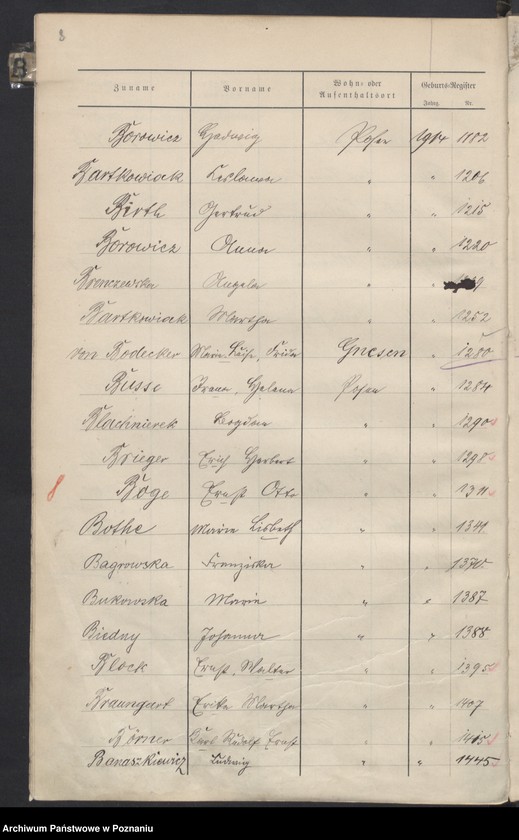 8
B
Zuname Vorname Wohn- oder Aufenthaltsort Geburts-Register
Jahrg. Nr.
Borowicz Hedwig Posen 1914 1182
Bartkowiak " " 1206
Birth Gertrud " " 1215
Borowicz Anna " " 1220
Angela " "
Bartkowiak Martha " " 1252
von Bodecker Marie Luise, Frida Gnesen " 1280
Busse Franz, Helene Posen " 1284
Blachnierek Bogdan " " 1290
Brieger Erich Herbert " " 1298
8 Böge Ernst Otto " " 1311
Bothe Marie Lisbeth " " 1341
Bagrowska Franziska " " 1370
Bukowska Marie " " 1387
Biedny Johanna " " 1388
Block Ernst, Walter " " 1395
Braungart Erika Martha " " 1407
Börner Curt Rudolf Ernst " " 1415
Banaszkiewicz Ludwig " " 1445
Archiwum Państwowe w Poznaniu